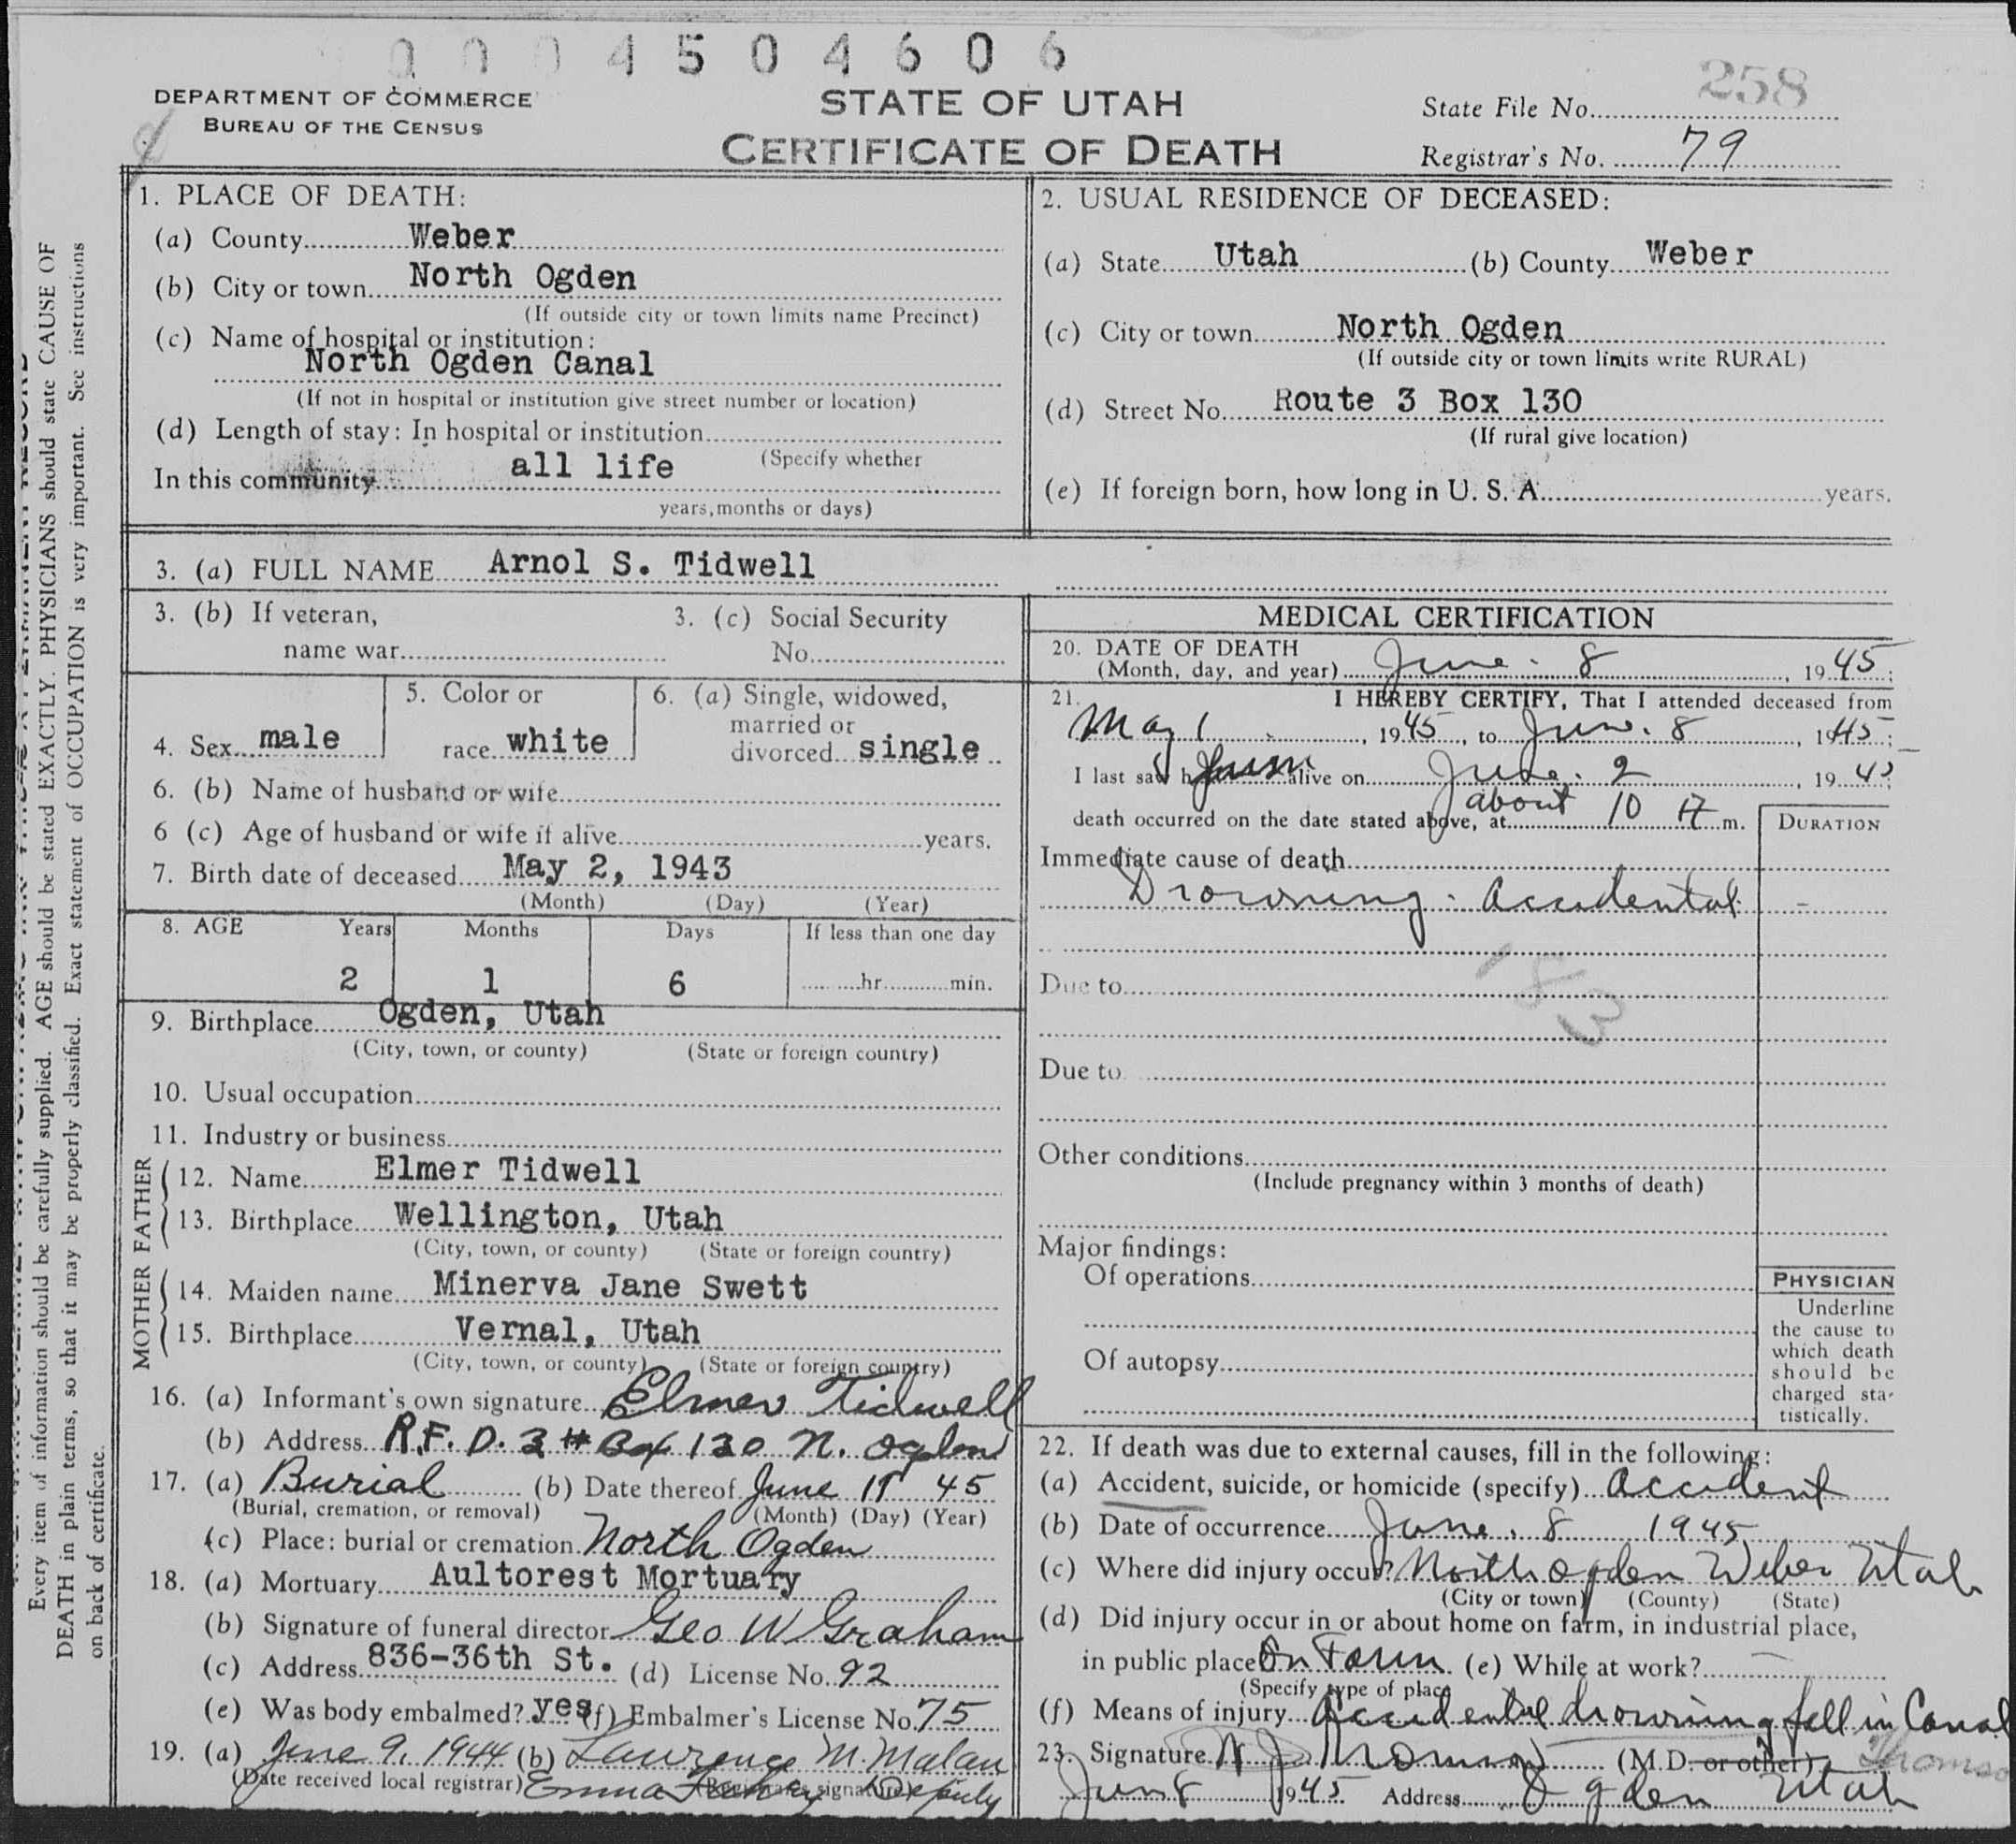 0004504606
258
DEPARTMENT OF COMMERCE
BUREAU OF THE CENSUS
STATE OF UTAH
CERTIFICATE OF DEATH
State File No.
Registrar's No. 79
1. PLACE OF DEATH:
(a) County Weber
(b) City or town North Ogden
(If outside city or town limits name Precinct)
(c) Name of hospital or institution:
North Ogden Canal
(If not in hospital or institution give street number or location)
(d) Length of stay: In hospital or institution
(Specify whether
In this community all life
years, months or days)
2. USUAL RESIDENCE OF DECEASED:
(a) State Utah (b) County Weber
(c) City or town North Ogden
(If outside city or town limits write RURAL)
(d) Street No. Route 3 Box 130
(If rural give location)
(e) If foreign born, how long in U. S. A. years.
3. (a) FULL NAME Arnol S. Tidwell
3. (b) If veteran,
name war
3. (c) Social Security
No.
4. Sex male
5. Color or
race white
6. (a) Single, widowed,
married or
divorced single
6. (b) Name of husband or wife
6 (c) Age of husband or wife if alive years.
7. Birth date of deceased May 2, 1943
(Month) (Day) (Year)
8. AGE Years Months Days If less than one day
2 1 6 hr. min.
9. Birthplace Ogden, Utah
(City, town, or county) (State or foreign country)
10. Usual occupation
11. Industry or business
FATHER
12. Name Elmer Tidwell
13. Birthplace Wellington, Utah
(City, town, or county) (State or foreign country)
MOTHER
14. Maiden name Minerva Jane Swett
15. Birthplace Vernal, Utah
(City, town, or county) (State or foreign country)
16. (a) Informant's own signature Elmer Tidwell
(b) Address R.F.D. 3 # Box 130 N. Ogden
17. (a) Burial (b) Date thereof June 11 45
(Burial, cremation, or removal) (Month) (Day) (Year)
(c) Place: burial or cremation North Ogden
18. (a) Mortuary Aultorest Mortuary
(b) Signature of funeral director Geo W Graham
(c) Address 836-36th St. (d) License No. 92
(e) Was body embalmed? yes (f) Embalmer's License No. 75
19. (a) June 9, 1944 (b) Lawrence M. Malan
(Date received local registrar) (Registrar's signature)
Emma Deputy
MEDICAL CERTIFICATION
20. DATE OF DEATH
(Month, day, and year) June 8, 1945;
21. I HEREBY CERTIFY, That I attended deceased from
May 1, 1945, to June 8, 1945;
I last saw h alive on June 2 1945;
death occurred on the date stated above, at about 10 A m.
DURATION
Immediate cause of death
Drowning: Accidental -
183
Due to
Due to
Other conditions
(Include pregnancy within 3 months of death)
Major findings:
Of operations
Of autopsy
PHYSICIAN
Underline
the cause to
which death
should be
charged sta-
tistically.
22. If death was due to external causes, fill in the following:
(a) Accident, suicide, or homicide (specify) accident
(b) Date of occurrence June 8 1945
(c) Where did injury occur? North Ogden Weber Utah
(City or town) (County) (State)
(d) Did injury occur in or about home on farm, in industrial place,
in public place On Farm (e) While at work? -
(Specify type of place
(f) Means of injury Accidental drowning fell in Canal
23. Signature (M.D. or other)
June 8 1945 Address Ogden Utah
Every item of information should be carefully supplied. AGE should be stated EXACTLY. PHYSICIANS should state CAUSE OF
DEATH in plain terms, so that it may be properly classified. Exact statement of OCCUPATION is very important. See instructions
on back of certificate.